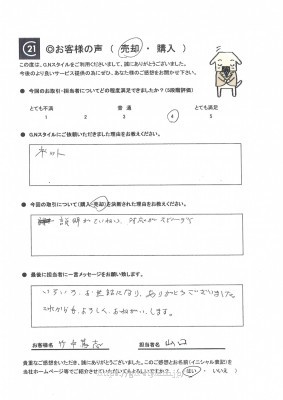 21 ◎お客様の声 ( 売却 ・ 購入 )
この度は、G.Nスタイルをご利用くださいまして、誠にありがとうございました。
今後のより良いサービス提供の為にぜひ、あなた様のご感想をお聞かせ下さい。
● 今回のお取引・担当者についてどの程度満足できましたか?(5段階評価)
とても不満 普通 とても満足
1 2 3 4 5
● G.Nスタイルにご依頼いただきました理由をお教えください。
ネット
● 今回の取引について(購入・売却)を決断された理由をお教えください。
説明がていねい、対応がスピーディ
● 最後に担当者に一言メッセージをお願い致します。
いろいろ、お世話になり、ありがとうございました。
これからも、よろしく、お願いします。
お客様名 竹中 担当者名 山口
貴重なご感想をいただき、誠にありがとうございました。このご感想とお名前(イニシャル表記)を
当社ホームページ等でご紹介させていただいてもよろしいですか。 ( はい ・ いいえ )